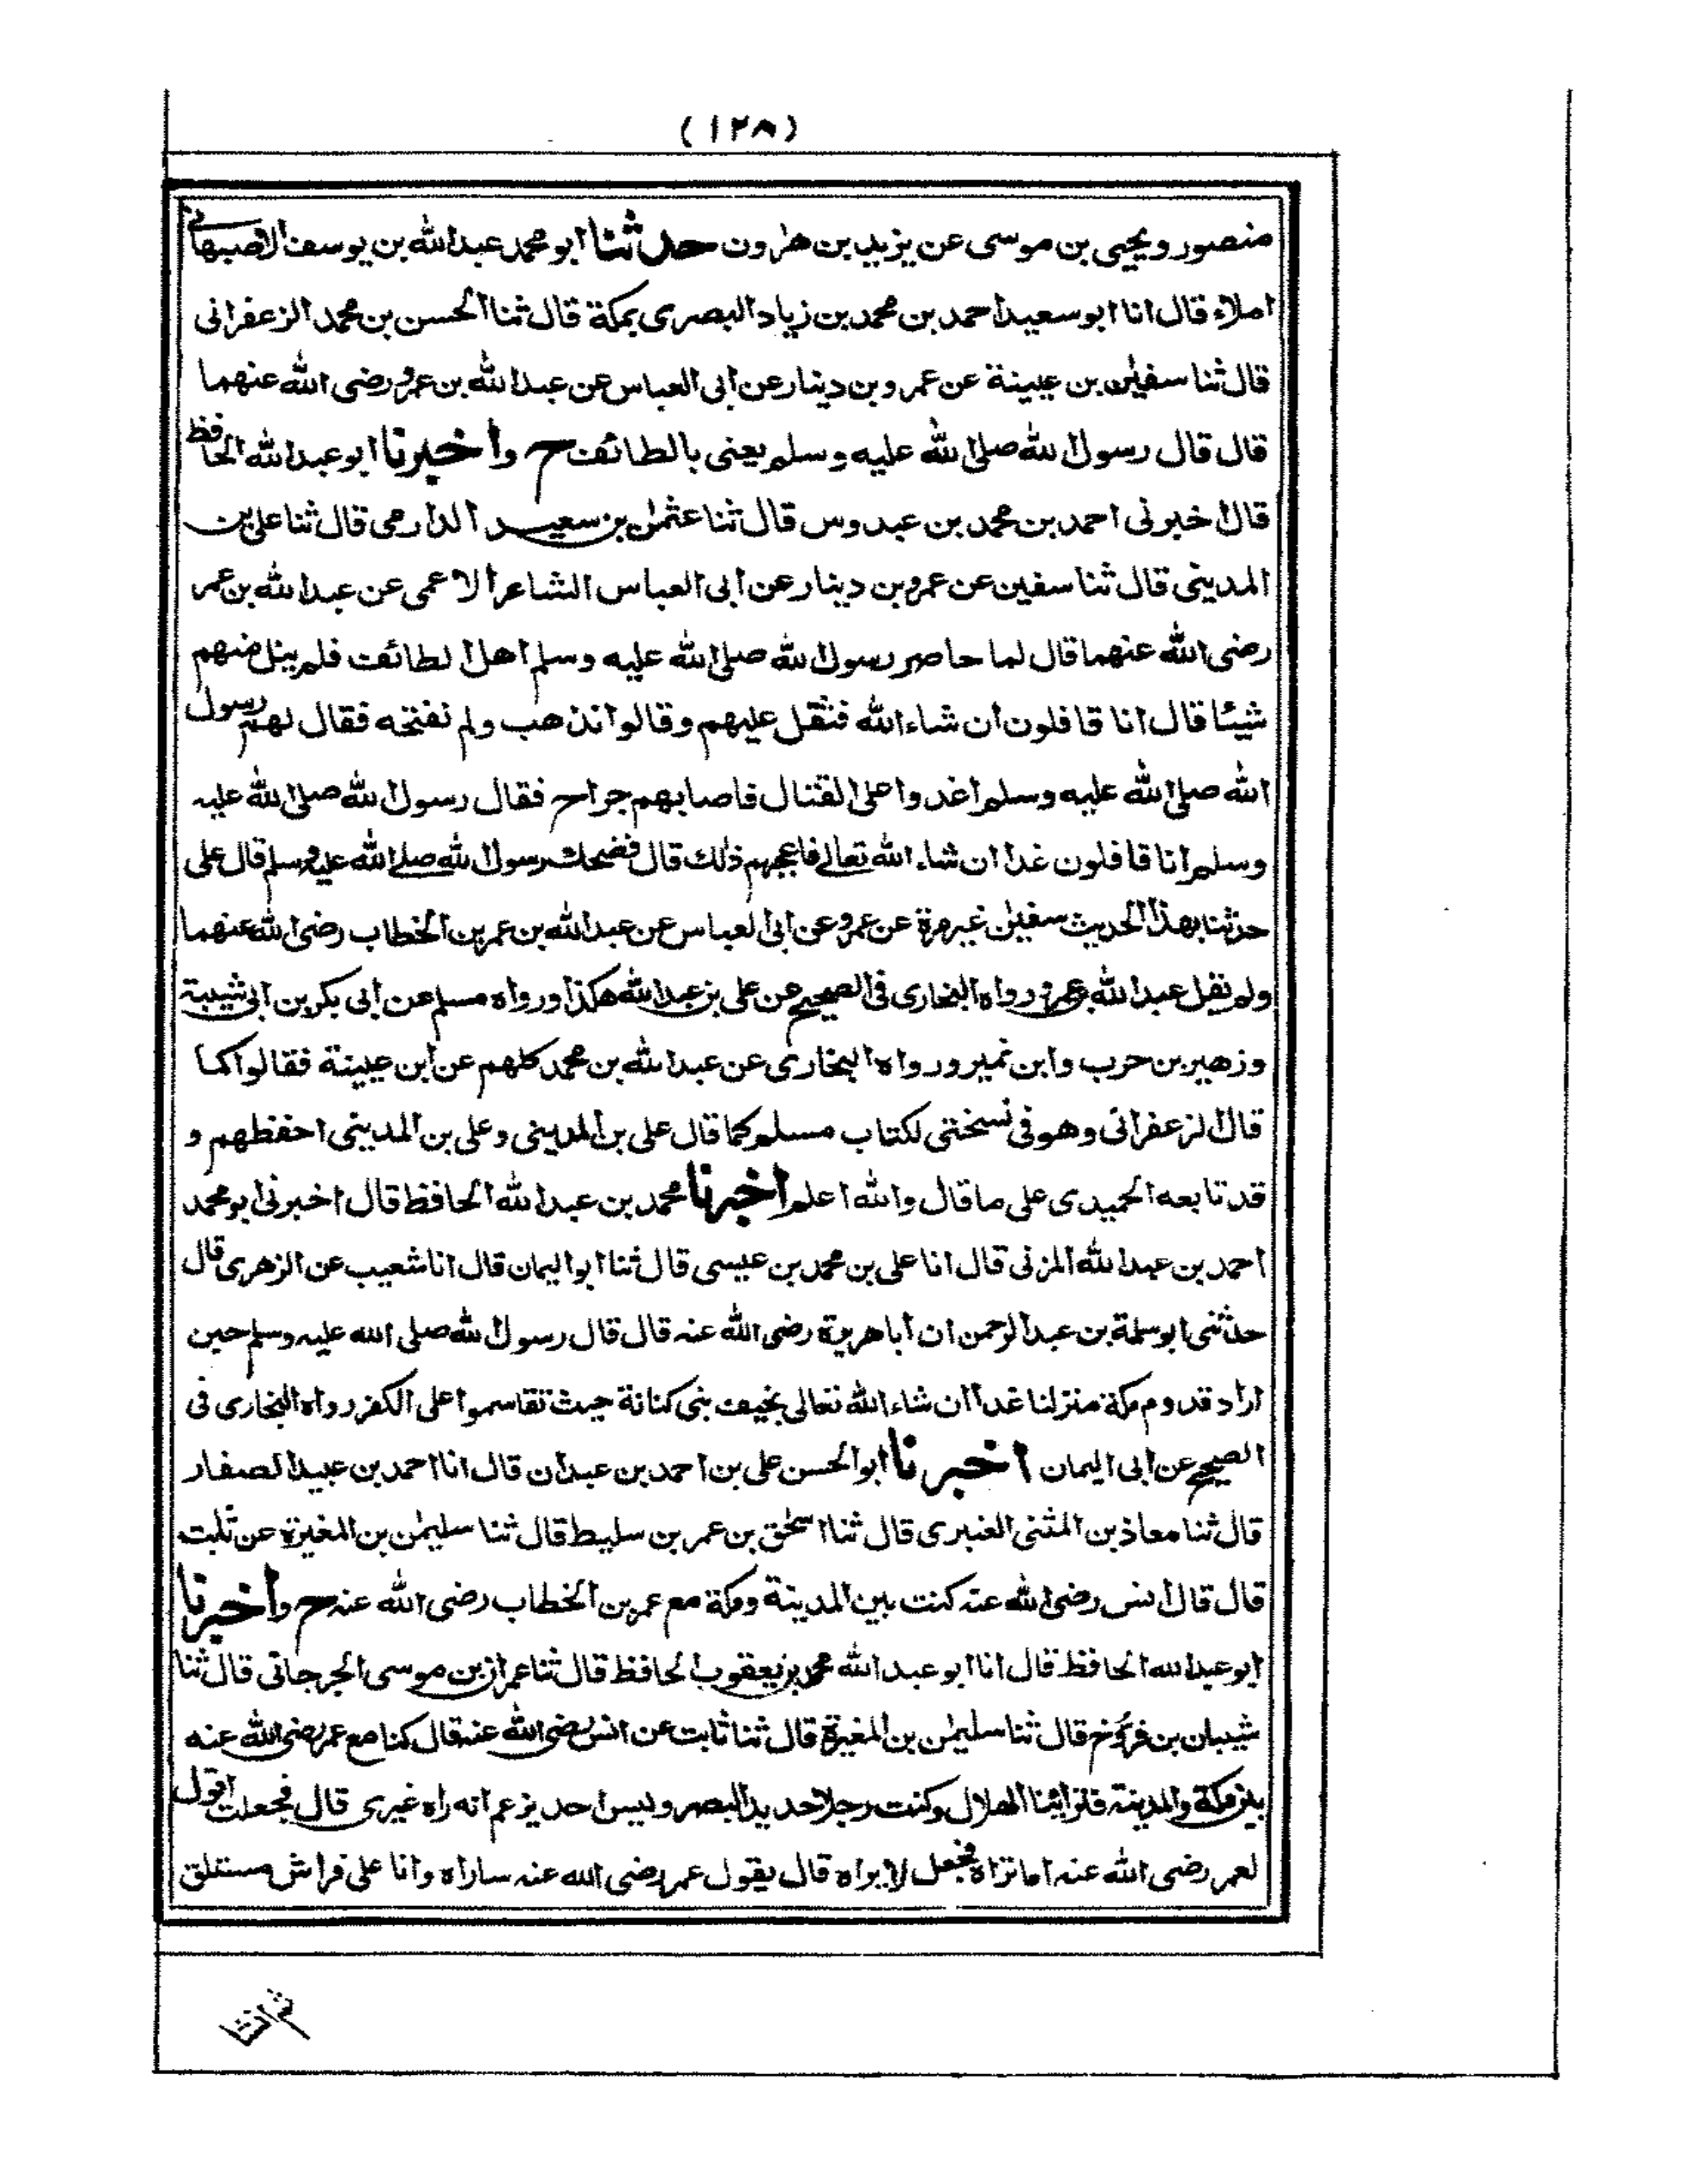 (١٢٨)
منصور ويحيى بن موسى عن يزيد بن هٰرون حدثنا ابو محمد عبد الله بن يوسف الاصبهانى
املاء قال انا ابو سعيد احمد بن محمد بن زياد البصرى بمكة قال ثنا الحسن بن محمد الزعفرانى
قال ثنا سفيٰن بن عيينة عن عمرو بن دينار عن ابى العباس عن عبد الله بن عمرو رضى الله عنهما
قال قال رسول الله صلى الله عليه وسلم يعنى بالطائف ح واخبرنا ابو عبد الله الحافظ
قال اخبرنى احمد بن محمد بن عبدوس قال ثنا عثمٰن بن سعيد الدارمى قال ثنا على بن
المدينى قال ثنا سفين عن عمرو بن دينار عن ابى العباس الشاعر الاعمى عن عبد الله بن عمر
رضى الله عنهما قال لما حاصر رسول الله صلى الله عليه وسلم اهل الطائف فلم ينل منهم
شيئا قال انا قافلون ان شاء الله فثقل عليهم وقالوا نذهب ولم نفتحه فقال لهم رسول
الله صلى الله عليه وسلم اغدوا على القتال فاصابهم جراح فقال رسول الله صلى الله عليه
وسلم انا قافلون غدا ان شاء الله تعالى فاعجبهم ذلك قال فضحك رسول الله صلى الله عليه وسلم قال على
حدثنا بهذا الحديث سفيٰن غير مرة عن عمرو عن ابى العباس عن عبد الله بن عمر بن الخطاب رضى الله عنهما
ولم نقل عبد الله بن عمرو ورواه البخارى فى الصحيح عن على بن عبد الله هكذا ورواه مسلم عن ابى بكر بن ابى شيبة
وزهير بن حرب وابن نمير ورواه البخارى عن عبد الله بن محمد كلهم عن ابن عيينة فقالوا كما
قال الزعفرانى وهو فى نسختى لكتاب مسلم كما قال على بن المدينى وعلى بن المدينى احفظهم و
قد تابعه الحميدى على ما قال والله اعلم اخبرنا محمد بن عبد الله الحافظ قال اخبرنى ابو محمد
احمد بن عبد الله المزنى قال انا على بن محمد بن عيسى قال ثنا ابو اليمان قال انا شعيب عن الزهرى قال
حدثنى ابو سلمة بن عبد الرحمن ان ابا هريرة رضى الله عنه قال قال رسول الله صلى الله عليه وسلم حين
اراد قدوم مكة منزلنا غدا ان شاء الله تعالى بخيف بنى كنانة حيث تقاسموا على الكفر رواه البخارى فى
الصحيح عن ابى اليمان اخبرنا ابو الحسن على بن احمد بن عبدان قال انا احمد بن عبيد الصفار
قال ثنا معاذ بن المثنى العنبرى قال ثنا اسحٰق بن عمر بن سليط قال ثنا سليمٰن بن المغيرة عن ثابت
قال قال انس رضى الله عنه كنت بين المدينة ومكة مع عمر بن الخطاب رضى الله عنه ح واخبرنا
ابو عبد الله الحافظ قال انا ابو عبد الله محمد بن يعقوب الحافظ قال ثنا عمران بن موسى الجرجانى قال ثنا
شيبان بن فروخ قال ثنا سليمٰن بن المغيرة قال ثنا ثابت عن انس رضى الله عنه قال كنا مع عمر رضى الله عنه
بين مكة والمدينة فتراينا الهلال وكنت رجلا حديد البصر وليس احد يزعم انه راه غيرى قال فجعلت اقول
لعمر رضى الله عنه اما تراه فجعل لا يراه قال يقول عمر رضى الله عنه ساراه وانا على فراش مستلق
ثم انشا